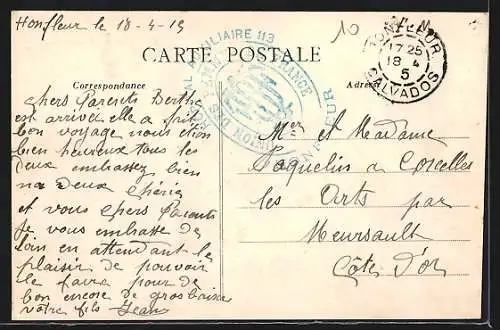 Honfleur le 18-4-15
10
CARTE POSTALE
HONFLEUR
17 25
18 4
5
CALVADOS
AUXILIAIRE 113
UNION DES FRANCE
HONFLEUR
Correspondance
Adresse
chers Parents Berthe
est arrivé elle a fait
bon voyage nous étion
bien heureux tous les
deux embassez bien
ma deux chérie
et vous chers Parents
Je vous embasse de
loin en attendant le
plaisir de pouvoir
le faire pour de
bon encore de gros
votre fils Jean
Mer et Madame
Jaquelin a Corcelles
les Arts par
Meursault
Côte d'or